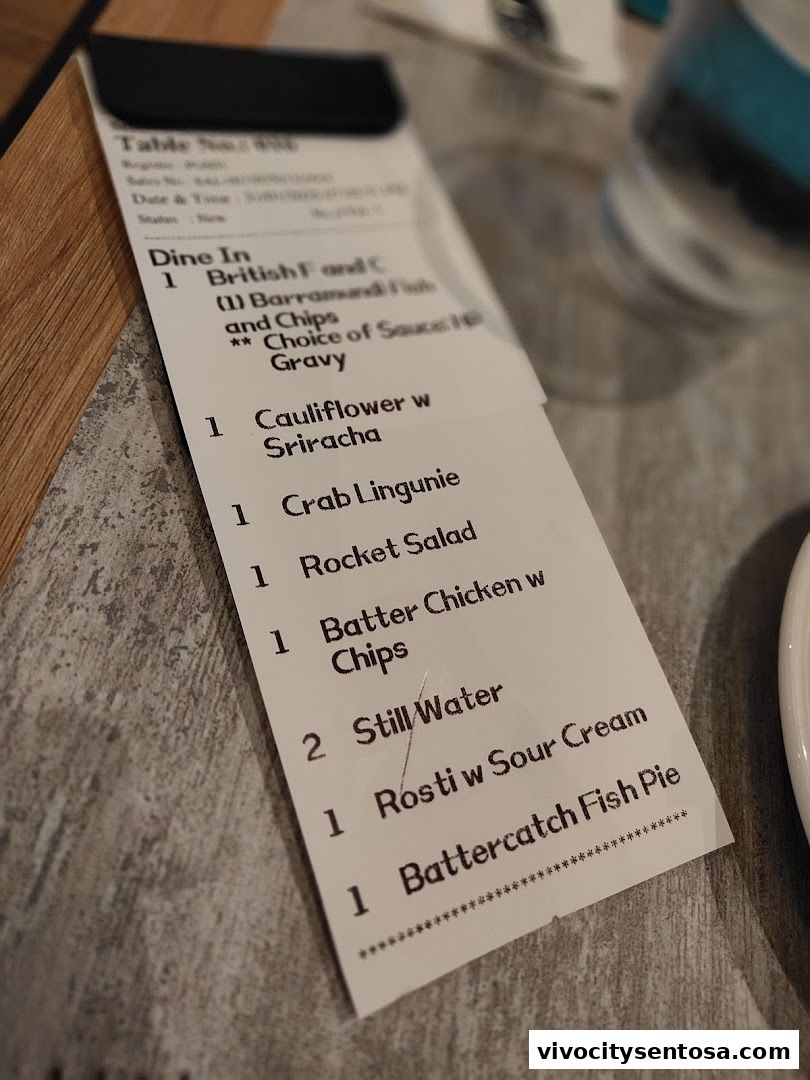 Table No.:
Date & Time :
Status : New
Dine In
1 British F and C
(1) Barramundi Fish
and Chips
** Choice of Sauce:
Gravy
1 Cauliflower w
Sriracha
1 Crab Lingunie
1 Rocket Salad
1 Batter Chicken w
Chips
2 Still Water
1 Rosti w Sour Cream
1 Battercatch Fish Pie
****************************************
vivocitysentosa.com